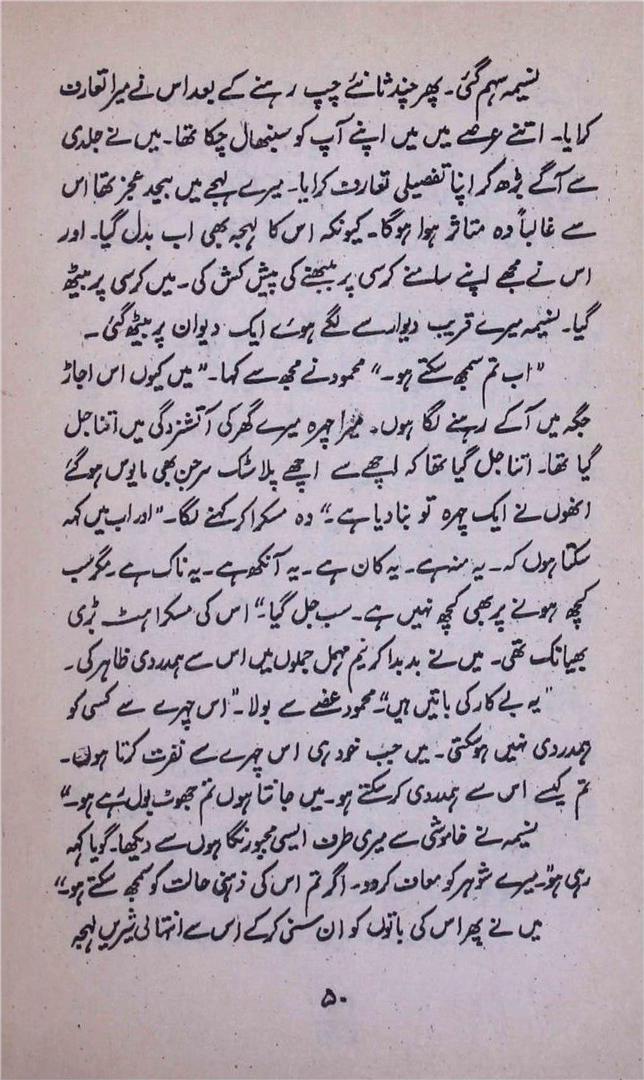 نسیمہ سہم گئی۔ پھر چند ثانئے چپ رہنے کے بعد اس نے میرا تعارف
کرایا۔ اتنے عرصے میں میں اپنے آپ کو سنبھال چکا تھا۔ میں نے جلدی
سے آگے بڑھ کر اپنا تفصیلی تعارف کرایا۔ میرے لہجے میں بیحد عجز تھا اس
سے غالباً وہ متاثر ہوا ہوگا۔ کیونکہ اس کا لہجہ بھی اب بدل گیا۔ اور
اس نے مجھے اپنے سامنے کرسی پر بیٹھنے کی پیش کش کی۔ میں کرسی پر بیٹھ
گیا۔ نسیمہ میرے قریب دیوار سے لگے ہوئے ایک دیوان پر بیٹھ گئی۔
"اب تم سمجھ سکتے ہو۔" محمود نے مجھ سے کہا۔ "میں کیوں اس اجاڑ
جگہ میں آکے رہنے لگا ہوں۔ میرا چہرہ میرے گھر کی آتشزدگی میں اتنا جل
گیا تھا۔ اتنا جل گیا تھا کہ اچھے سے اچھے پلاسٹک سرجن بھی مایوس ہو گئے
انھوں نے ایک چہرہ تو بنا دیا ہے۔" وہ مسکرا کر کہنے لگا۔ "اور اب میں کہہ
سکتا ہوں کہ۔ یہ منہ ہے۔ یہ کان ہے۔ یہ آنکھ ہے۔ یہ ناک ہے۔ مگر سب
کچھ ہونے پر بھی کچھ نہیں ہے۔ سب جل گیا۔" اس کی مسکراہٹ بڑی
بھیانک تھی۔ میں نے بدبدا کر نیم مہمل جملوں میں اس سے ہمدردی ظاہر کی۔
"یہ بے کار کی باتیں ہیں"۔ محمود غصے سے بولا۔ "اس چہرے سے کسی کو
ہمدردی نہیں ہو سکتی۔ میں جب خود ہی اس چہرے سے نفرت کرتا ہوں۔
تم کیسے اس سے ہمدردی کر سکتے ہو۔ میں جانتا ہوں تم جھوٹ بول رہے ہو۔"
نسیمہ نے خاموشی سے میری طرف ایسی مجبور نگاہوں سے دیکھا۔ گویا کہہ
رہی ہو"۔ میرے شوہر کو معاف کردو۔ اگر تم اس کی ذہنی حالت کو سمجھ سکتے ہو۔"
میں نے پھر اس کی باتوں کو ان سنی کر کے اس سے انتہائی شیریں لہجہ
۵۰